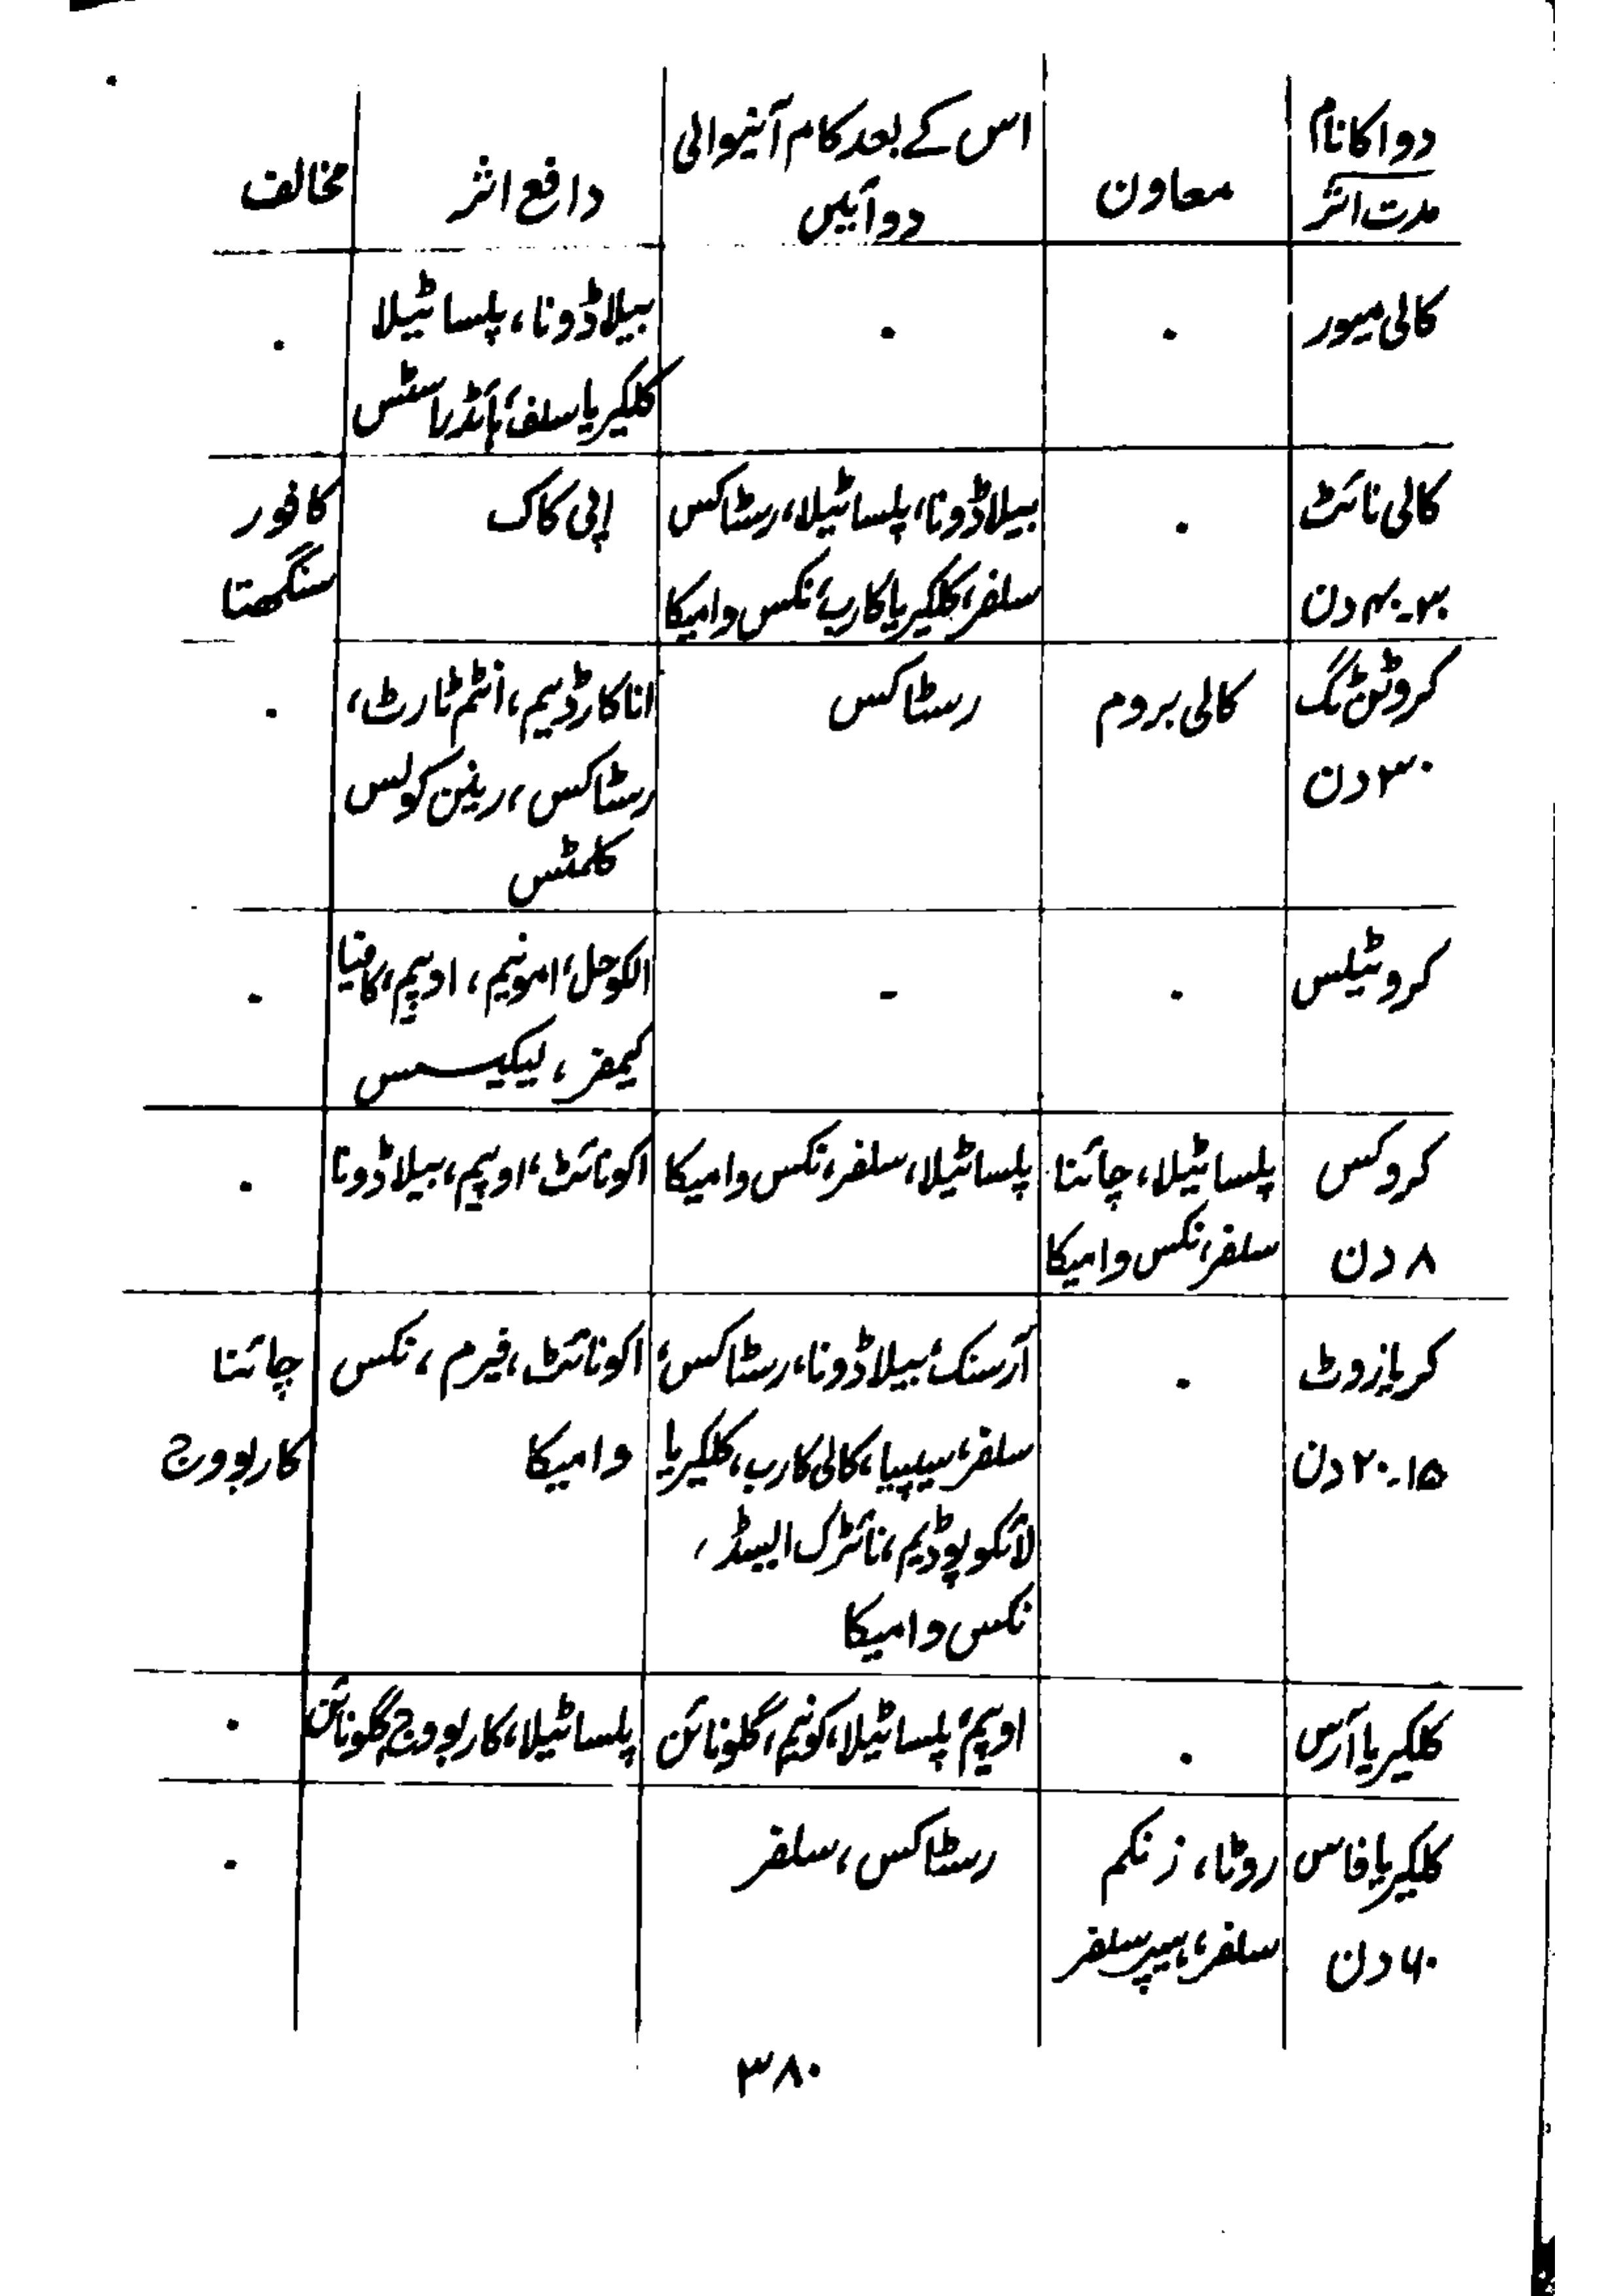 دوا کا نام
مدت اثر
معاون
اس کے بعد کام آنیوالی
دوائیں
دافع اثر
مخالف
کالی میور
.
.
بیلاڈونا، پلساٹیلا
کلکیریا سلف، ہائڈراسٹس
.
کالی نائٹ
۳۰-۴۰ دن
.
بیلاڈونا، پلساٹیلا، رسٹاکس
سلفر، کلکیریا کارب، نکس وامیکا
اپی کاک
کافور
سنگھتا
کروٹن ٹگ
۳۰ دن
کالی بروم
رسٹاکس
اناکارڈیم، انٹم ٹارٹ،
رسٹاکس، رینن کولس
کلمٹس
.
کروٹیلس
.
-
الکوحل، امونیم، اوپیم، کافیا
کیمفر، لیکیسس
.
کروکس
۸ دن
پلساٹیلا، چائنا
سلفر، نکس وامیکا
پلساٹیلا، سلفر، نکس وامیکا
اکونائٹ، اوپیم، بیلاڈونا
.
کریازوٹ
۱۵-۲۰ دن
.
آرسنک، بیلاڈونا، رسٹاکس،
سلفر، سیپیا، کالی کارب، کلکیریا
لائکوپوڈیم، نائٹرک ایسڈ،
نکس وامیکا
اکونائٹ، فیرم، نکس
وامیکا
چائنا
کاربووج
کلکیریا آرس
.
اوپیم، پلساٹیلا، کونیم، گلونائن
پلساٹیلا، کاربووج، گلونائن
.
کلکیریا فاس
۶۰ دن
روٹا، زنکم
سلفر، ہیپر سلفر
رسٹاکس، سلفر
.
۳۸۰